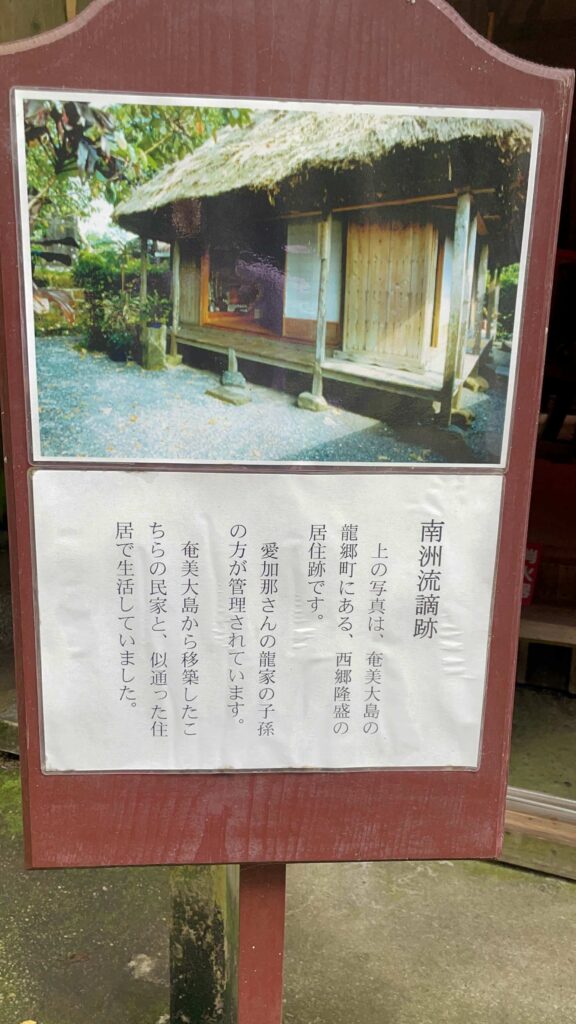 南洲流謫跡
上の写真は、奄美大島の
龍郷町にある、西郷隆盛の
居住跡です。
愛加那さんの龍家の子孫
の方が管理されています。
奄美大島から移築したこ
ちらの民家と、似通った住
居で生活していました。